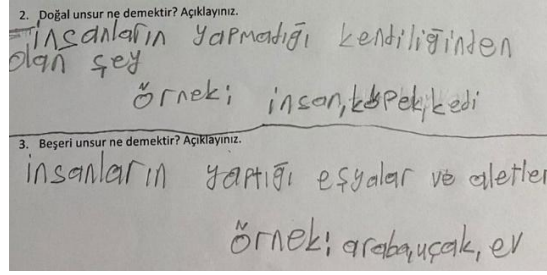 2. Doğal unsur ne demektir? Açıklayınız.
İnsanların yapmadığı kendiliğinden
olan şey
örnek; insan, köpek, kedi
3. Beşeri unsur ne demektir? Açıklayınız.
insanların yaptığı eşyalar ve aletler
örnek; araba, uçak, ev